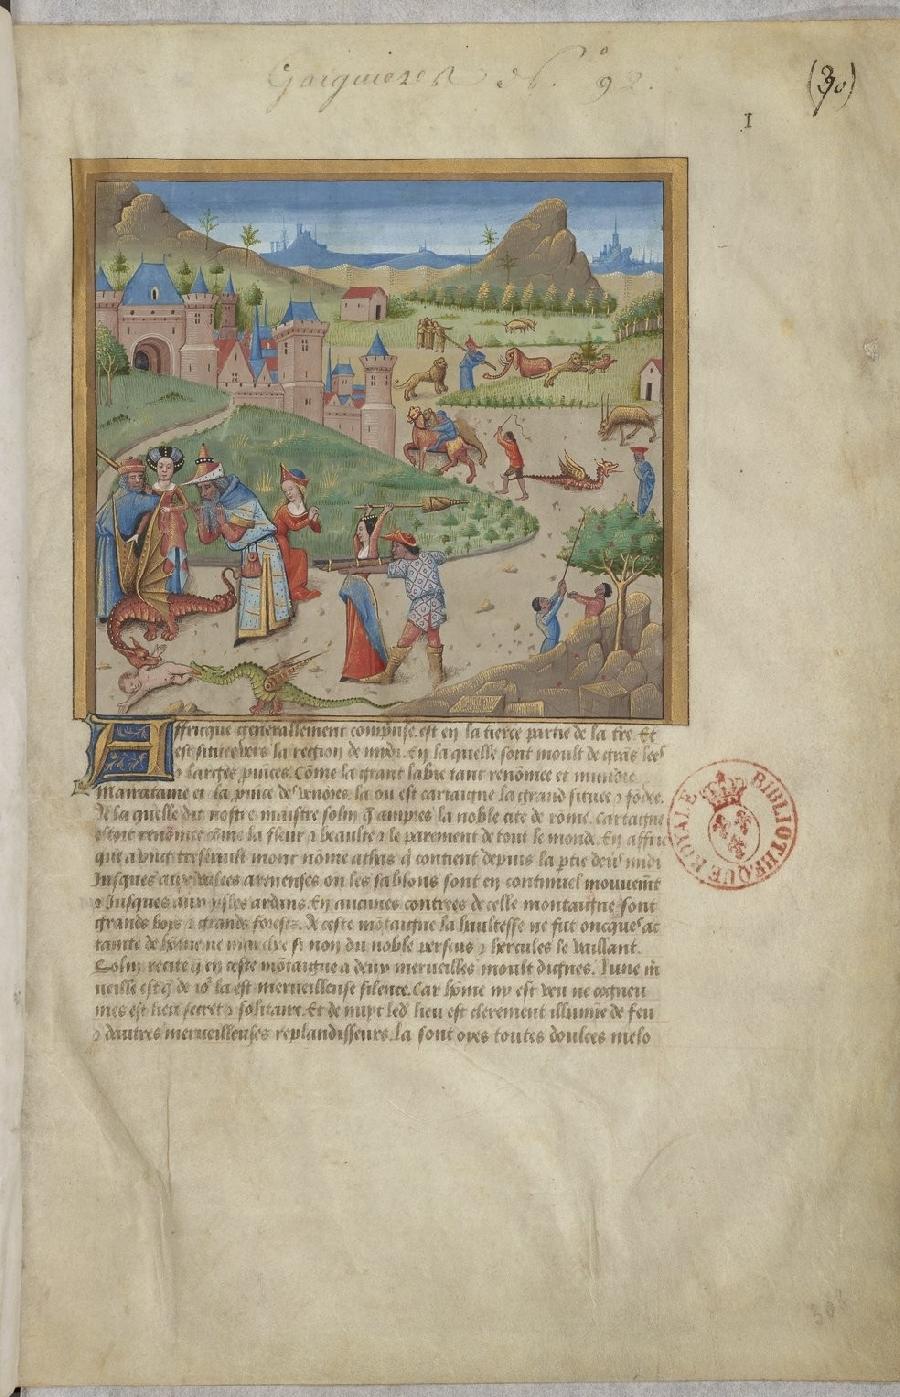 N.º 92.
(30)
I
Affricque generallement comprize est en la tierce partie de la tre. Et
est situee vers la region de midi. En la quelle sont moult de grās
⁊ larges puīces. Cōme la grant labie tant renōmee et
Mauritaine et la puīce de la ou est cartaige la grand situee ⁊ fōdee.
De la quelle dit nostre maistre solin q̄ ampres la noble cite de rome. Cartaige
estoit renōmee cōme la fleur ⁊ beaulte ⁊ le parement de tout le monde. En affri
que a vng mont nōme athas q̄ contient depuis la ptie de midi
Jusques aux arenenses ou les sablons sont en continuel mouuemēt
⁊ Jusques aux ysles En aucunes contrees de celle montaigne sont
grands boys ⁊ grands forestz. De ceste mōtaigne la haultesse ne fut oncques
de hōme ne si non du noble perseus ⁊ hercules le vaillant.
Solin recite q̄ en ceste mōtaigne a deux merueilles moult dignes. lune
ueille est q̄ de Jo² la est merueilleuse silence. Car hōme ny est veu ne cogneu
mes est lieu secret ⁊ solitaire. Et de nuyt led lieu est clerement illumine de feu
⁊ dautres merueilleuses replandisseurs. La sont oyes toutes doulces melo
BIBLIOTHEQUE ROYALE